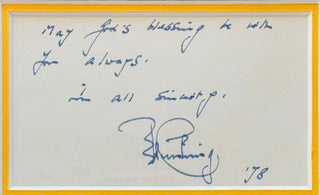 May God's blessing be with
you always.
in all sincerity.
'78